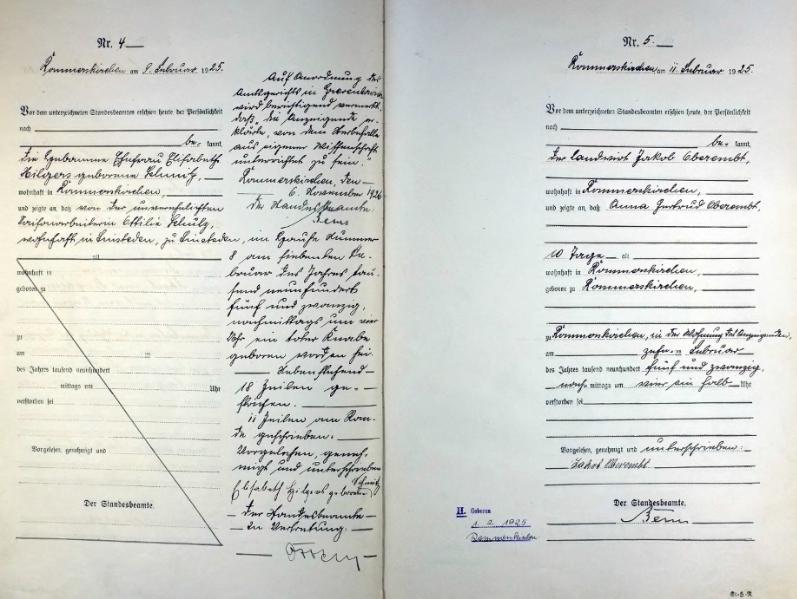 Nr. 4
Rommerskirchen am 9. Februar 1925.
Vor dem unterzeichneten Standesbeamten erschien heute, der Persönlichkeit
nach
be- kannt,
die Hebamme Ehefrau Elisabeth
Hilgers geborene Schmitz,
wohnhaft in Rommerskirchen,
und zeigte an, daß von der unverehelichten
Ottilie Schulz,
wohnhaft in Sinsteden, zu Sinsteden, im Hause Nummer
alt
wohnhaft in
geboren zu
zu
am ten
des Jahres tausend neunhundert
mittags um Uhr
verstorben sei
Vorgelesen, genehmigt und
Der Standesbeamte.
Auf Anordnung des
Amtsgerichts in Grevenbroich
wird berichtigend vermerkt,
daß die Anzeigende er-
klärte, von dem Sterbefalle
aus eigener Wissenschaft
unterrichtet zu sein."
Rommerskirchen, den
6. November 1926
Der Standesbeamte
Bens
8 am siebenten Fe-
bruar des Jahres tau-
send neunhundert
fünf und zwanzig,
nachmittags um vier
Uhr ein toter Knabe
geboren worden sei.
Nebenstehend
18 Zeilen ge-
strichen.
11 Zeilen am Ran-
de geschrieben.
Vorgelesen, geneh-
migt und unterschrieben
Elisabeth Hilgers geborene Schmitz
Der Standesbeamte
In Vertretung:
Nr. 5
Rommerskirchen am 11. Februar 1925.
Vor dem unterzeichneten Standesbeamten erschien heute, der Persönlichkeit
nach
be- kannt,
der Landwirt Jakob Oberembt,
wohnhaft in Rommerskirchen,
und zeigte an, daß Anna Gertrud Oberembt,
10 Tage alt
wohnhaft in Rommerskirchen,
geboren zu Rommerskirchen,
zu Rommerskirchen, in der Wohnung des Anzeigenden,
am zehnten Februar
des Jahres tausend neunhundert fünf und zwanzig,
nach mittags um vier ein halb Uhr
verstorben sei
Vorgelesen, genehmigt und unterschrieben:
Jakob Oberembt
Der Standesbeamte.
Bens
H. Geboren
1. 2. 1925
Rommerskirchen